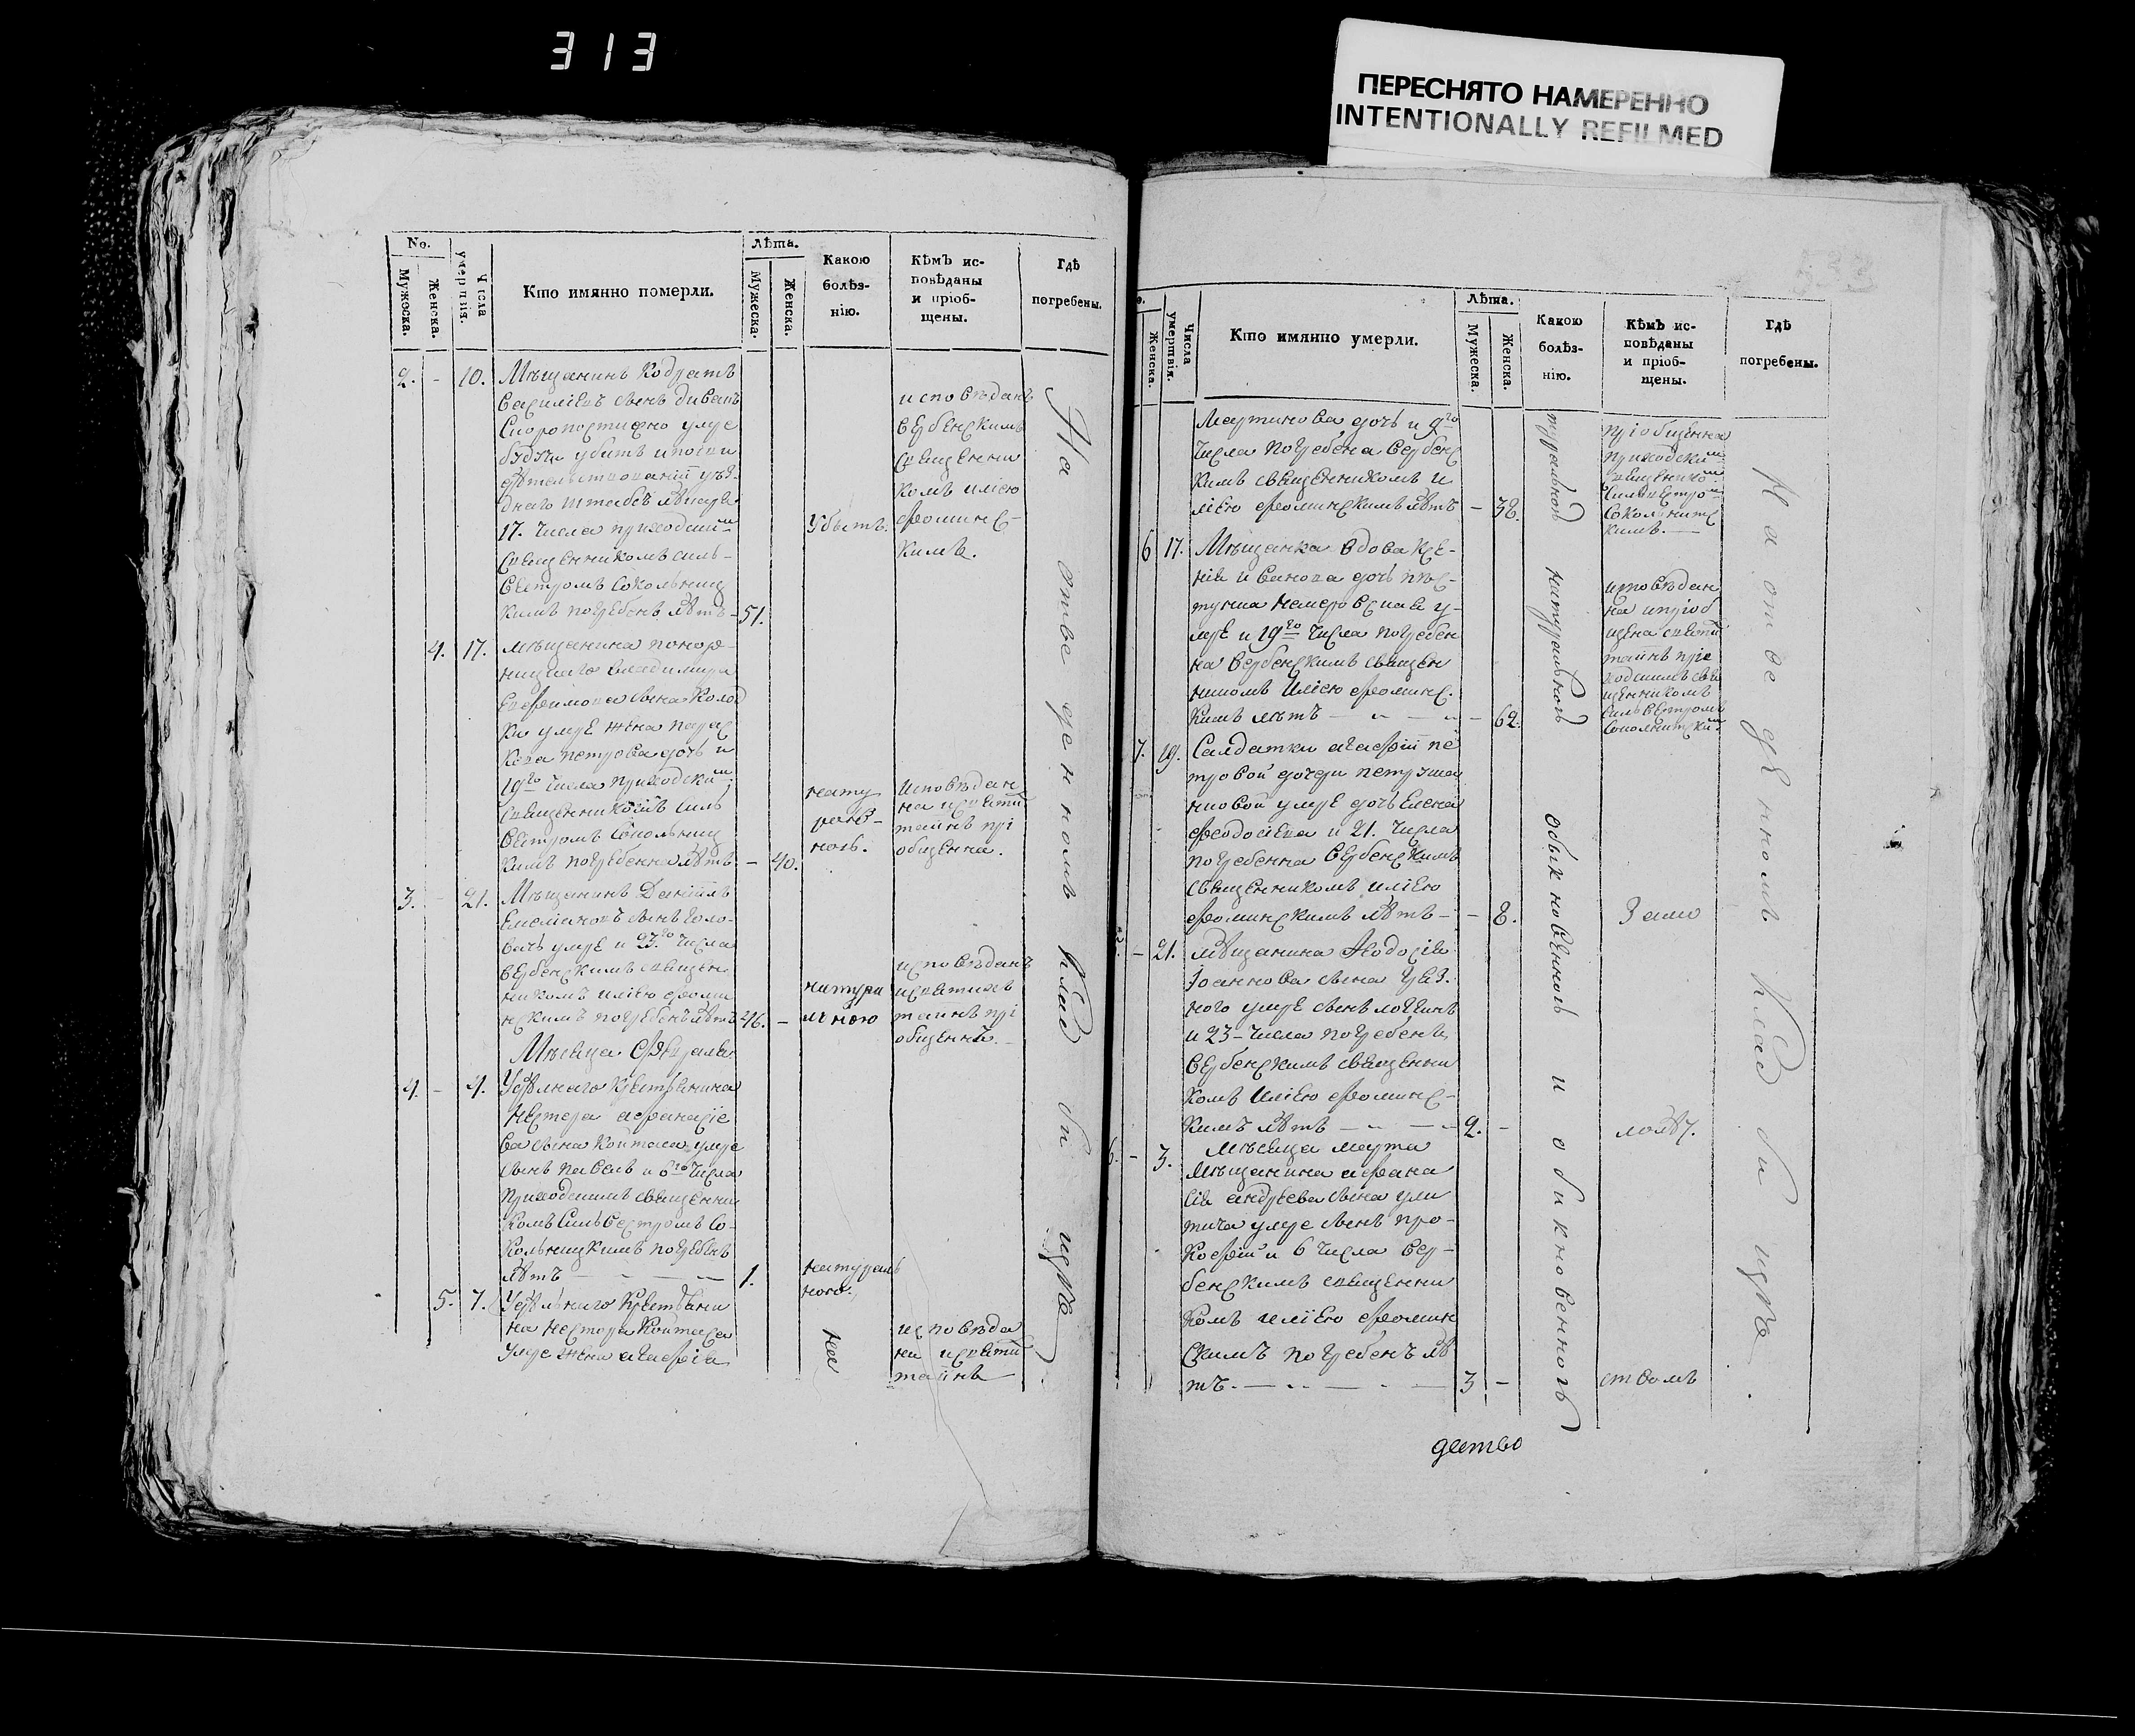 313
ПЕРЕСНЯТО НАМЕРЕННО
INTENTIONALLY REFILMED
No.
Мужеска.
Женска.
Числа умертвія.
Кто имянно померли.
Лѣта.
Мужеска.
Женска.
Какою болѣз-
нію.
Кѣмъ ис-
повѣданы
и пріоб-
щены.
Гдѣ
погребены.
2. - 10. Мѣщанинъ Кодратъ
Василіевъ сынъ
Скоропостижно умре
убитъ
днаго штабсъ лѣкаря
17. числа приходским
Священникомъ Силь-
вестромъ Сокольниц
кимъ погребенъ лѣтъ - 51.
Убытъ.
исповѣданъ
Вербенскимъ
Священни
комъ Иліею
Фоминс-
кимъ.
4. 17. Мѣщанина
Владимира
Евфимова сына Колод
ки умре жена Парас
кева Петрова дочь и
19го числа приходским
Священникомъ Силь
вестромъ Сокольниц
кимъ погребенна лѣтъ - 40.
нату
раль-
ною.
Исповѣдан
на и святи
таинъ прі
общенна.
3. - 21. Мѣщанинъ Даніилъ
Емеліановъ сынъ Голо-
вачъ умре и 23.го числа
Вербенскимъ священ
никомъ Иліею Фоми
нскимъ погребенъ лѣтъ 46. -
натура
лною
исповѣданъ
и святихъ
таинъ прі
общенъ.
Мѣсяца Февраля
4. - 4. Удѣлнаго крестьянина
Нестера Афанасіе
ва сына Койтаса умре
сынъ Павелъ и 6го числа
Приходскимъ священни
комъ Сильвестромъ Со-
кольницкимъ погребенъ
лѣтъ - - - 1.
натураль
ною.
5. 7. Удѣльнаго крестьяни
на Нестора Койтаса
умре жена Агафія
на
исповѣда
на и святи
таинъ
На отведенномъ кладбищѣ
No.
Женска.
Числа умертвія.
Кто имянно умерли.
Лѣта.
Мужеска.
Женска.
Какою
болѣз-
нію.
Кѣмъ ис-
повѣданы
и пріоб-
щены.
Гдѣ
погребены.
Мартинова дочь и 9го
числа погребена Вербенс
кимъ священникомъ И
ліею Фоминскимъ лѣтъ - 38.
туральною
пріобщенна
приходским
священико
Сильвестром
Сокольнитс
кимъ.
6 17. Мѣщанка вдова Ксе-
нія Иванова дочь
у-
мре и 19го числа погребен
на Вербенскимъ священ
никомъ Иліею Фоминс.
кимъ лѣтъ - - - 62.
натуральною
исповѣдан
на и пріоб
щена святи
таинъ при
ходскимъ свя
щенникомъ
Сильвестромъ
Соколнитским
7. 19. Салдатки Агафіи Пе
тровой дочери Петруша
нковой умре дочь Елена
Феодосіева и 21. числа
погребенна Вербенскимъ
священникомъ Иліею
Фоминскимъ лѣтъ - - 8.
обыкновенною
За мло
5. - 21. Мѣщанина Федосія
Іоаннова сына Гряз.
ного умре сынъ Логвинъ
и 23 - числа погребенъ
Вербенскимъ священни
комъ Иліею Фоминс-
кимъ лѣтъ - - - 2. -
и
лолѣт.
Мѣсяца Марта
6. - 3. Мѣщанина Афана
сія Андреева сына Ули
тича умре сынъ Про-
кофій и 6 числа Вер-
бенскимъ священни
комъ Иліею Фомин
скимъ погребенъ лѣ
тъ. - - - 3 -
обикновенною
ством
На отведенномъ кладбищѣ.
детво
533